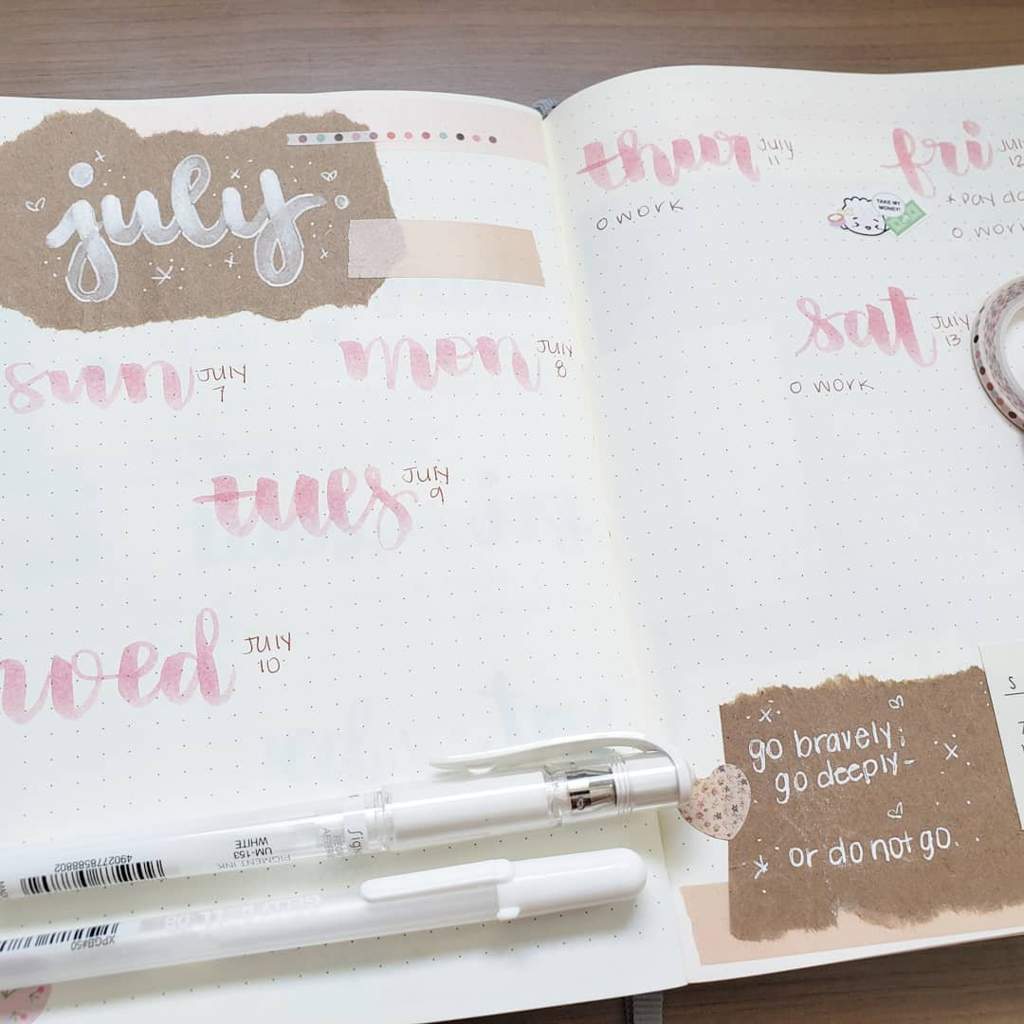 july
sun JULY
7
mon JULY
8
tues JULY
9
wed JULY
10
thur July
11
o work
fri July
12
TAKE MY
MONEY!
* pay da
o work
sat JULY
13
o work
go bravely;
go deeply-
or do not go.
S
4902778588802
UM-153
WHITE
PIGMENT INK
XPGB#50
GELLY ROLL 08